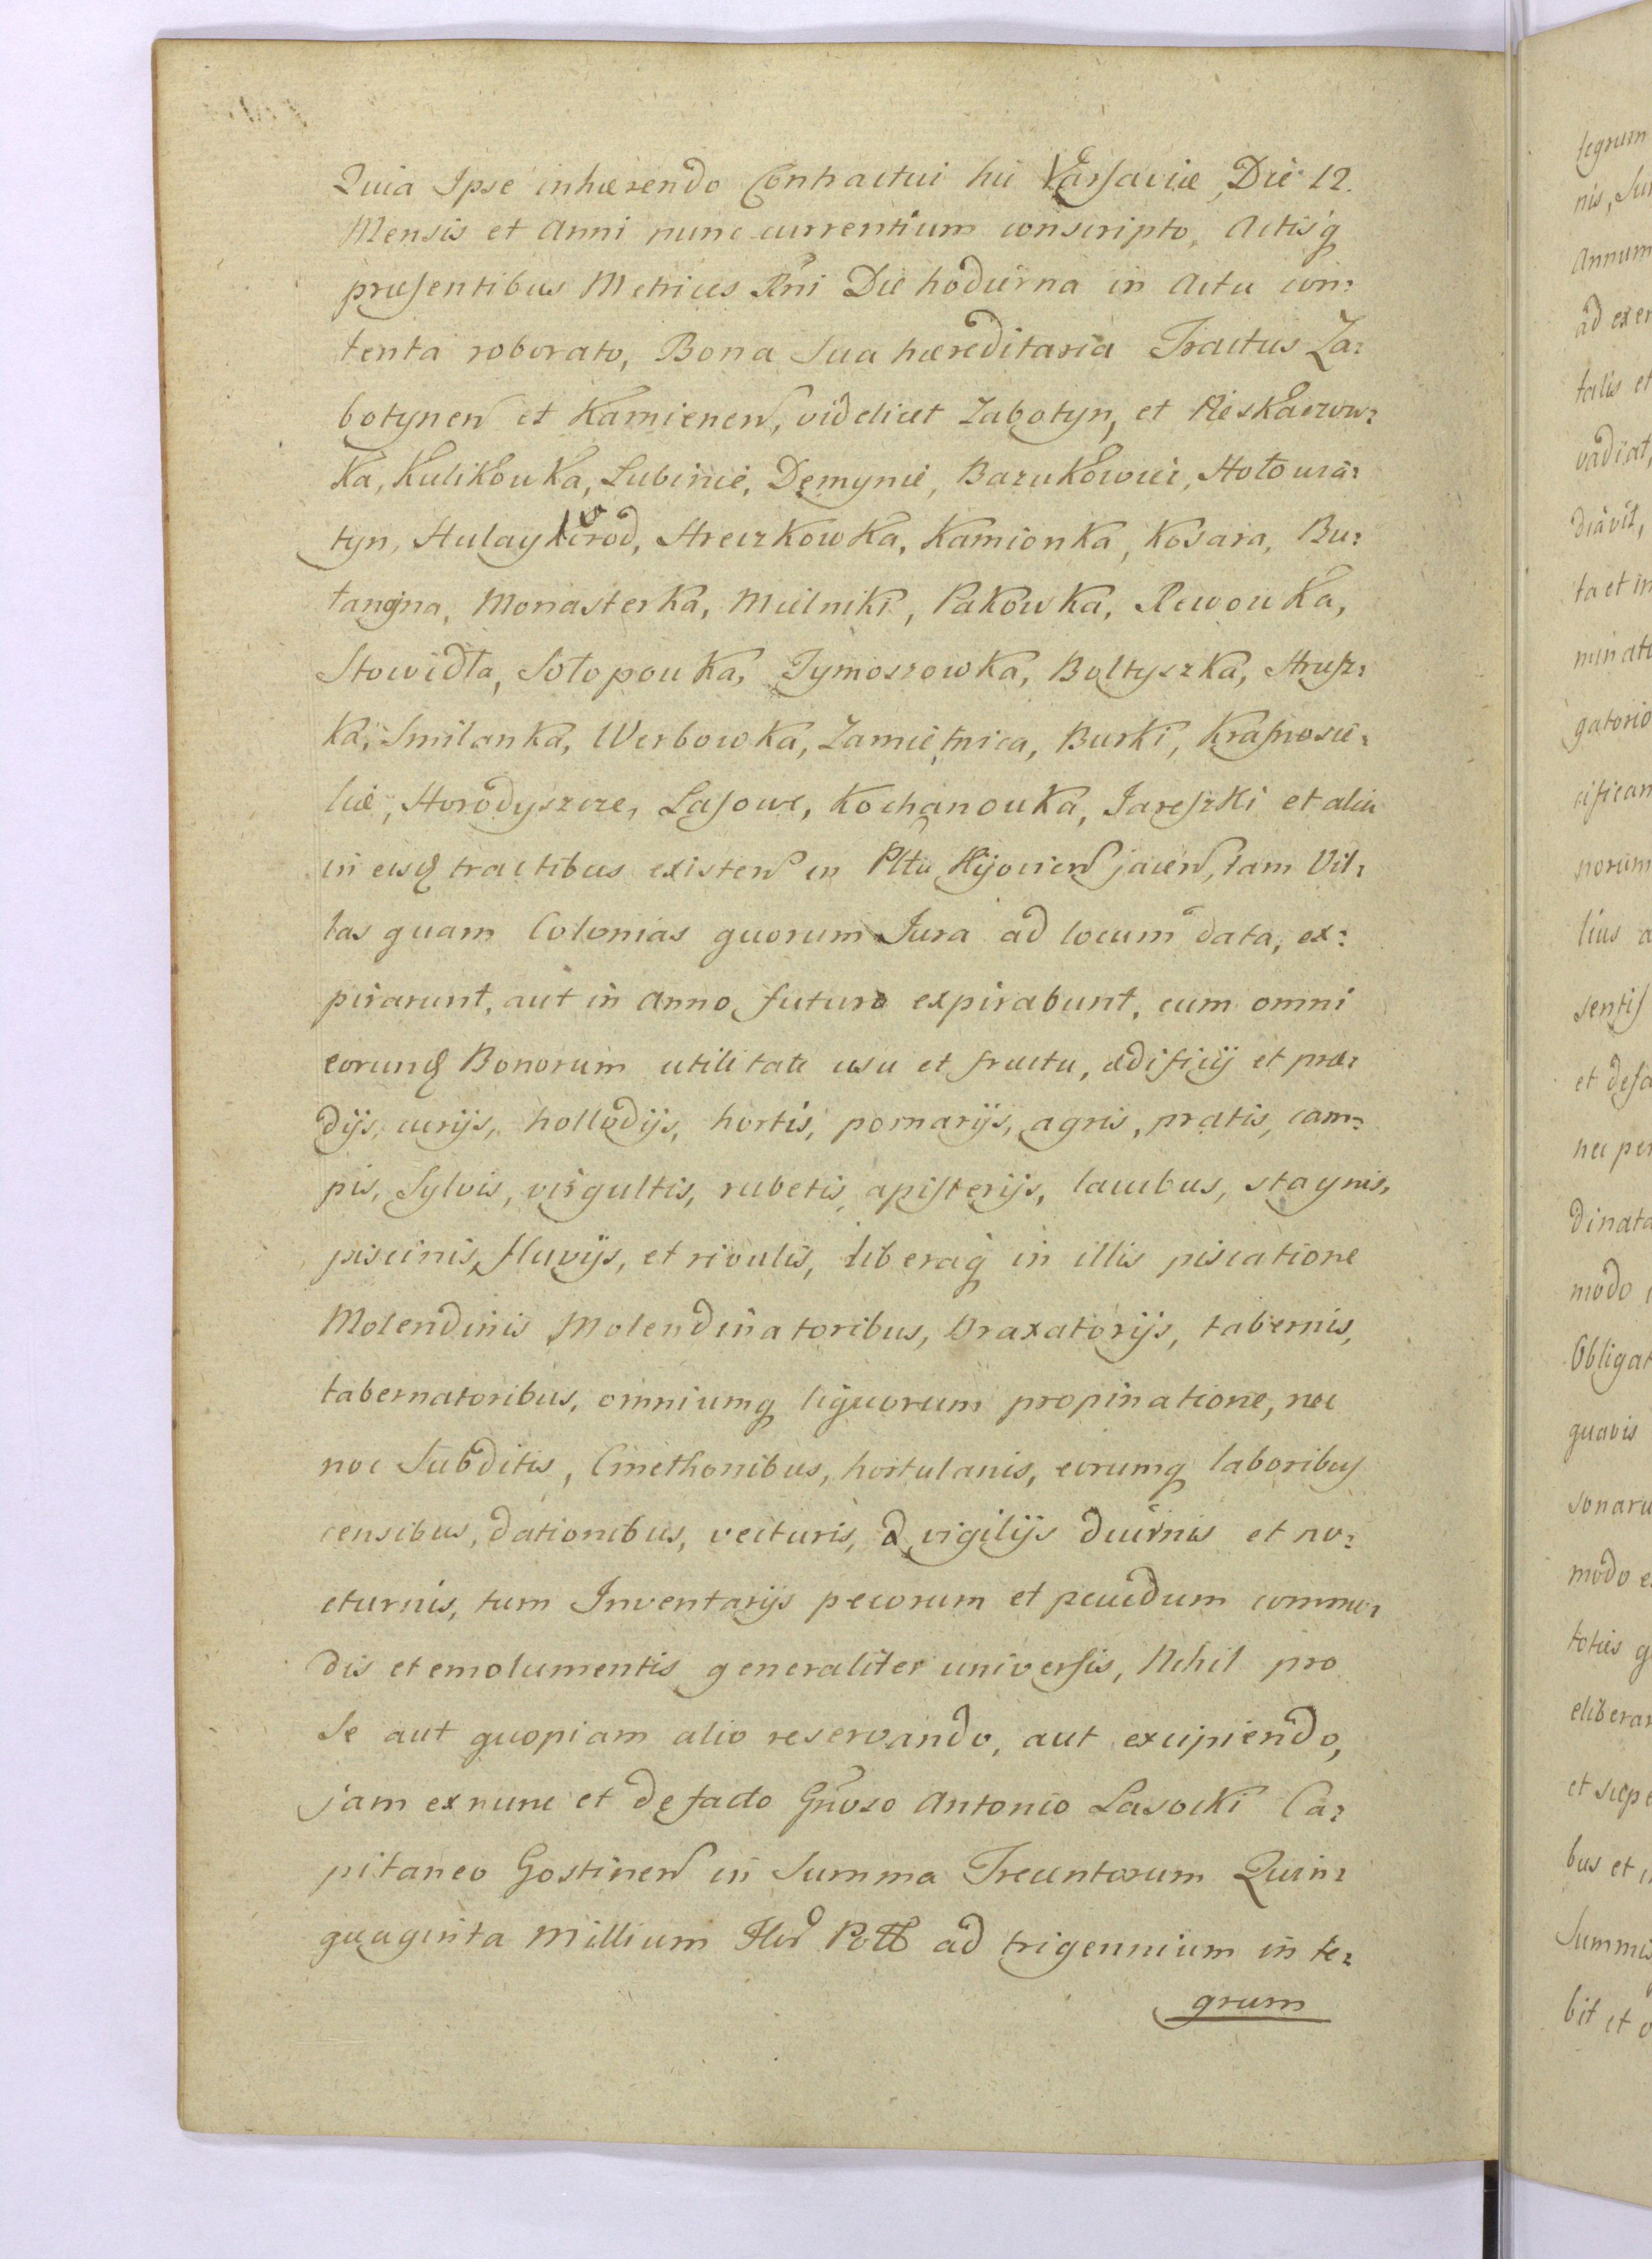 Quia Ipse inhærendo Contractui hic Varsaviæ, Die 12.
Mensis et Anni nunc currentium conscripto, Actisq
præsentibus Metrices Rni Die hodierna in Actu con:
tenta roborato, Bona Sua hæreditaria Tractus Za:
botynen et Kamienen, videlicet Zabotyn, et
Ka, Kulikowka, Lubinie, Demynie, Bazukowiec, Hołowia:
tyn, Hulay, Hreczkowka, Kamionka, Kosara, Bu:
tangna, Monasterka, Mielniki, Pakowka, Rewowka,
Stowidła, Sołopowka, Tymoszowka, Bołtyszka,
Ka, Smilanka, Werbowka, Zamiętnica, Burki, Krasnosie:
lie, Horodyszcze, Lasowe, Kochanowka, Jareszki et alia
in eisq tractibus existen in Plttu Kijovien jacen, tam Vil:
las quam Colonias quorum Jura ad locum data, ex:
pirarunt, aut in Anno futuro expirabunt, cum omni
eorunq Bonorum utilitate usu et fructu, ædificij et præ:
dijs, curijs, hollodijs, hortis, pomarijs, agris, pratis, cam:
pis, Sylvis, virgultis, rubetis, apisterijs, lacubus, stagnis,
piscinis, fluvijs, et rivulis, liberaq in illis piscatione
Molendinis Molendinatoribus, Braxatorijs, tabernis,
tabernatoribus, omniumq liquorum propinatione, nec
noc Subditis, Cmethonibus, hortulanis, eorumq laboribus
censibus, dationibus, vecturis, vigilijs diurnis et no:
cturnis, tum Inventarijs pecorum et pecudum commo:
dis et emolumentis generaliter universis, Nihil pro
Se aut quopiam alio reservando, aut excipiendo,
jam ex nunc et de facto Gnoso Antonio Lasocki Ca:
pitaneo Gostinen in Summa Trecentorum Quin:
quaginta Millium Flor Poll ad trigennium in te:
grum